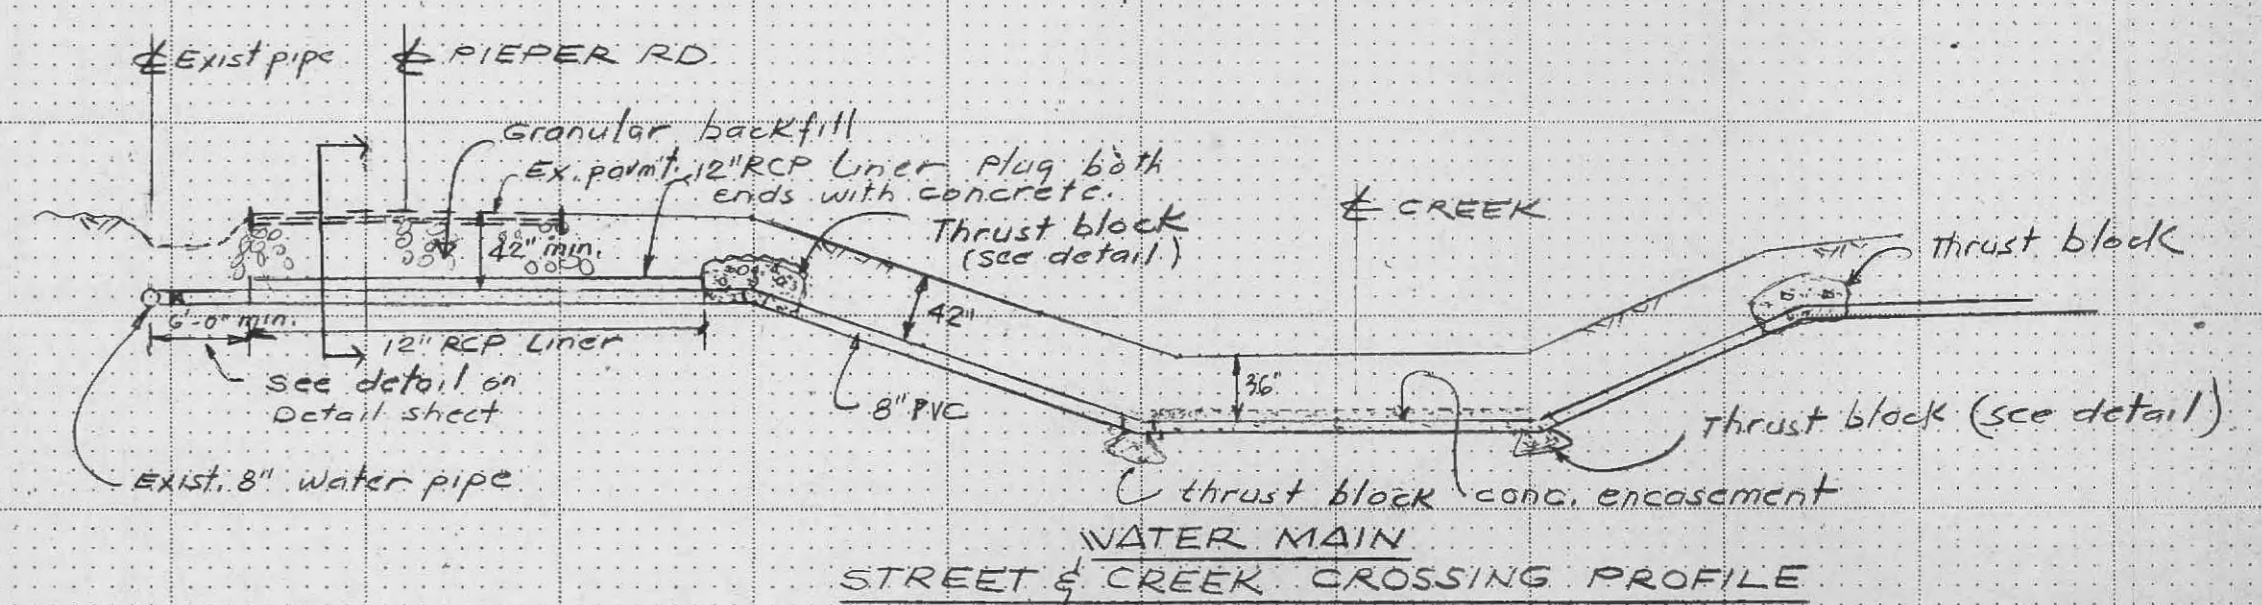 ℄ Exist pipe
℄ PIEPER RD.
Granular backfill
Ex. pavm't.
12" RCP Liner Plug both
ends with concrete.
Thrust block
(see detail)
℄ CREEK
Thrust block
42" min.
42"
6'-0" min.
12" RCP Liner
see detail on
Detail sheet
8" PVC
36"
Thrust block (see detail)
Exist. 8" water pipe
thrust block
conc. encasement
WATER MAIN
STREET & CREEK CROSSING PROFILE